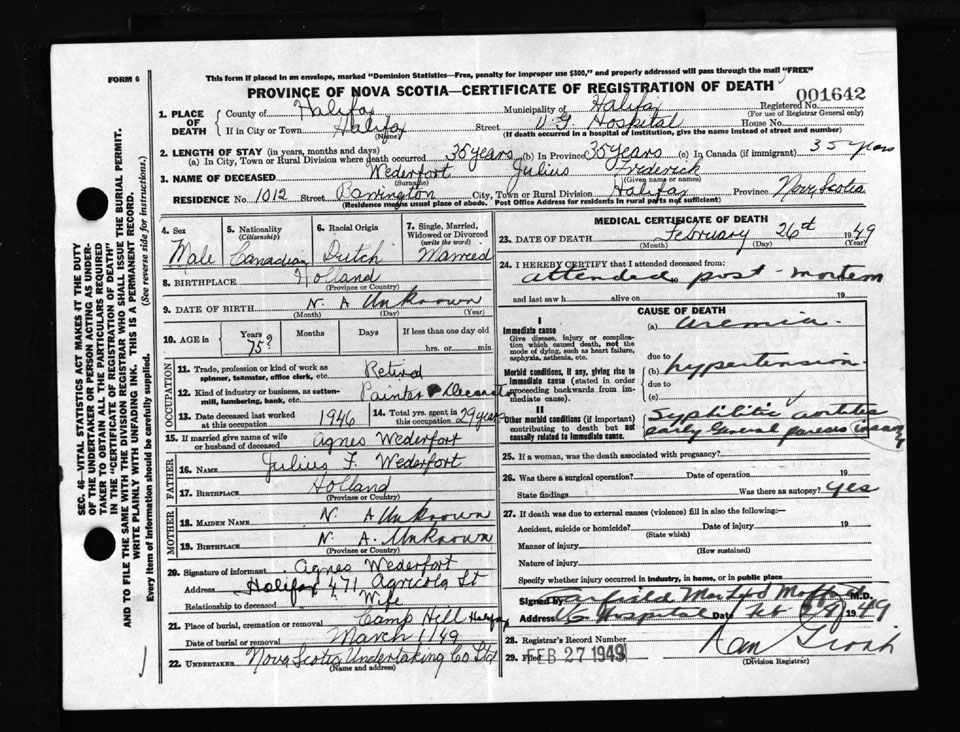 FORM 6
This form if placed in an envelope, marked "Dominion Statistics—Free, penalty for improper use $300," and properly addressed will pass through the mail "FREE"
PROVINCE OF NOVA SCOTIA—CERTIFICATE OF REGISTRATION OF DEATH
001642
1. PLACE OF DEATH County of Halifax Municipality of Halifax Registered No.
(For use of Registrar General only)
If in City or Town Halifax Street V.G. Hospital House No.
(Name) (If death occurred in a hospital of institution, give the name instead of street and number)
2. LENGTH OF STAY (in years, months and days)
(a) In City, Town or Rural Division where death occurred 35 years (b) In Province 35 years (c) In Canada (if immigrant) 35 years
3. NAME OF DECEASED Wederfort Julius Frederick
(Surname) (Given name or names)
RESIDENCE No. 1012 Street Barrington City, Town or Rural Division Halifax Province Nova Scotia
(Residence means usual place of abode. Post Office Address for residents in rural parts not sufficient)
4. Sex Male
5. Nationality (Citizenship) Canadian
6. Racial Origin Dutch
7. Single, Married, Widowed or Divorced (write the word) Married
8. BIRTHPLACE Holland
(Province or Country)
9. DATE OF BIRTH N. A Unknown
(Month) (Day) (Year)
10. AGE in Years 75? Months Days If less than one day old
hrs. or min.
OCCUPATION
11. Trade, profession or kind of work as spinner, teamster, office clerk, etc. Retired
12. Kind of industry or business, as cotton-mill, lumbering, bank, etc. Painter & Decorator
13. Date deceased last worked at this occupation 1946
14. Total yrs. spent in this occupation 29 years
15. If married give name of wife or husband of deceased Agnes Wederfort
FATHER
16. NAME Julius F. Wederfort
17. BIRTHPLACE Holland
(Province or Country)
MOTHER
18. MAIDEN NAME N. A Unknown
19. BIRTHPLACE N. A. Unknown
(Province or Country)
20. Signature of informant Agnes Wederfort
Address Halifax 471 Agricola St
Relationship to deceased Wife
21. Place of burial, cremation or removal Camp Hill Halifax
Date of burial or removal March 1/49
22. UNDERTAKER Nova Scotia Undertaking Co Ltd
(Name and address)
MEDICAL CERTIFICATE OF DEATH
23. DATE OF DEATH February 26th 1949
(Month) (Day) (Year)
24. I HEREBY CERTIFY that I attended deceased from:
attended post-mortem
and last saw h alive on 19
CAUSE OF DEATH
I
Immediate cause
Give disease, injury or complication which caused death, not the mode of dying, such as heart failure, asphyxia, asthenia, etc.
(a) Uremia
due to
Morbid conditions, if any, giving rise to immediate cause (stated in order proceeding backwards from immediate cause).
(b) hypertension
due to
(c)
II
Other morbid conditions (if important) contributing to death but not causally related to immediate cause.
Syphilitic aortitis
early General paresis insane
25. If a woman, was the death associated with pregnancy?
26. Was there a surgical operation? Date of operation 19
State findings Was there an autopsy? yes
27. If death was due to external causes (violence) fill in also the following:—
Accident, suicide or homicide? Date of injury 19
(State which)
Manner of injury
(How sustained)
Nature of injury
Specify whether injury occurred in industry, in home, or in public place
Signed by Garfield M.D.
Address V.G. Hospital Date Feb 1949
28. Registrar's Record Number
29. Filed FEB 27 1949
(Division Registrar)
SEC. 46—VITAL STATISTICS ACT MAKES IT THE DUTY
OF THE UNDERTAKER OR PERSON ACTING AS UNDER-
TAKER TO OBTAIN ALL THE PARTICULARS REQUIRED
IN THE "CERTIFICATE OF REGISTRATION OF DEATH"
AND TO FILE THE SAME WITH THE DIVISION REGISTRAR WHO SHALL ISSUE THE BURIAL PERMIT.
WRITE PLAINLY WITH UNFADING INK. THIS IS A PERMANENT RECORD.
Every item of information should be carefully supplied. (See reverse side for instructions.)